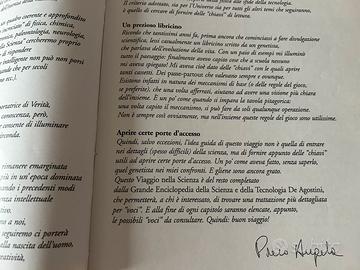 o quale coerente e approfondito
" di fisica, chimica,
, paleontologia, neurologia,
la Scienza" cercheremo proprio
di rispondere
e intelligente non può non porsi
ande che per secoli
ec.)
ortatrice di Verità,
onoscenza, però,
onsente di illuminare
vironda.
rimanere emarginata
iù in un'epoca dominata
ndo i precedenti modi
enza intellettuale
rativo,
o noi,
e seguiremo ci porterà
alla nascita dell'uomo,
creatività,
nella fisica alle sfide della tecnologia.
Il criterio adottato, sia per l'Universo sia per altri temi che seguiranno,
è quello di cercare di fornire delle "chiavi" di lettura.
Un prezioso libricino
Ricordo che tantissimi anni fa, prima ancora che cominciassi a fare divulgazione
scientifica, lessi casualmente un libricino scritto da un genetista,
che parlava dell'evoluzione della vita. Con un paio di esempi mi illuminò
tutto il paesaggio: finalmente avevo capito cose che a scuola nessuno
mi aveva spiegato! Mi aveva cioè dato delle "chiavi" con le quali aprire
tanti cassetti. Dei passe-partout che valevano sempre e ovunque.
Esistono infatti in natura dei meccanismi di base (o delle regole del gioco,
se preferite), che una volta afferrati, aiutano ad avere una visione più chiara
dell'insieme. È un po' come quando si impara la tavola pitagorica:
una volta capito il meccanismo, si può fare da soli qualunque operazione.
Non è sempre così ovviamente, ma nell'insieme queste regole del gioco sono utilissime.
Aprire certe porte d'accesso
Quindi, salvo eccezioni, l'idea guida di questo viaggio non è quella di entrare
nei dettagli (spesso difficili) della scienza, ma di fornire appunto delle "chiavi"
utili ad aprire certe porte d'accesso. Un po' come aveva fatto, senza saperlo,
quel genetista nei miei confronti. E gliene sono ancora grato.
Questo Viaggio nella Scienza è del resto completato
dalla Grande Enciclopedia della Scienza e della Tecnologia De Agostini,
che permetterà, a chi è interessato, di trovare una trattazione più dettagliata
per "voci". E alla fine di ogni capitolo saranno elencate, appunto,
le possibili "voci" da consultare. Quindi: buon viaggio!
Piero Angela